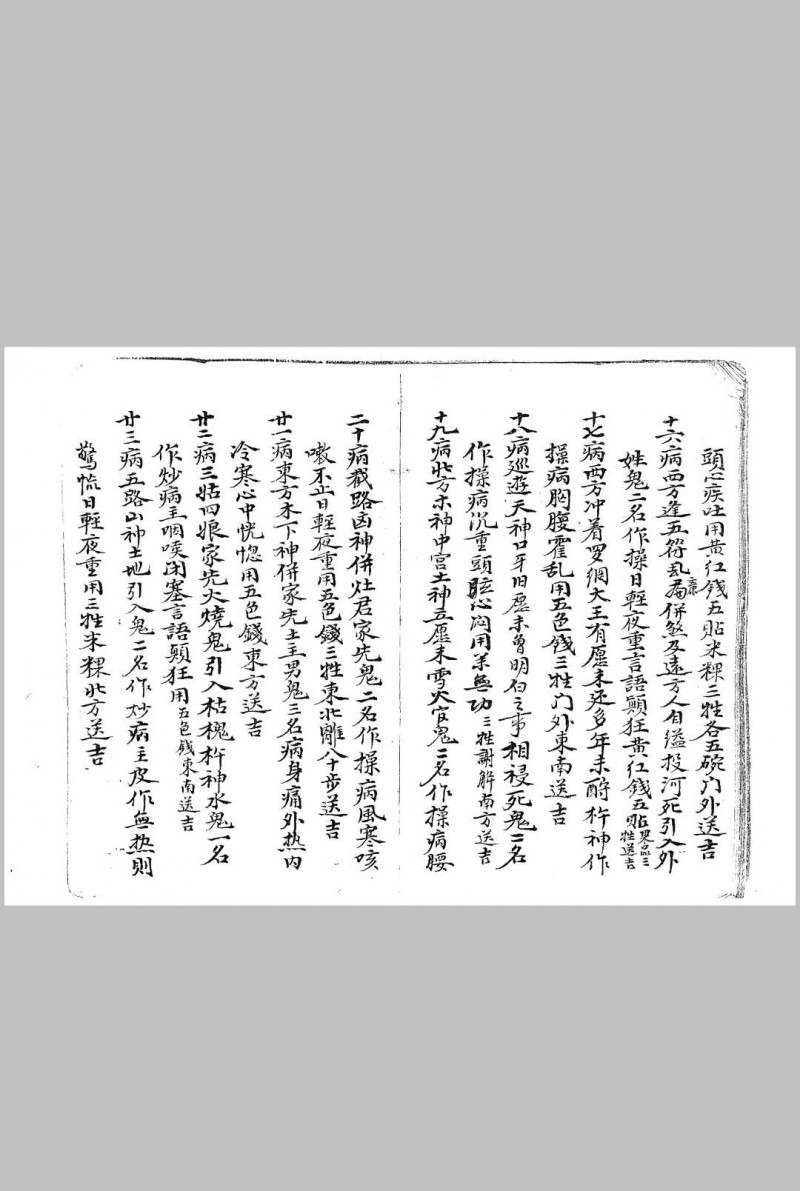 頭心疾吐用黄红錢五貼米粿三牲各五碗门外送吉
十六病西方逢五符乱病併煞及遠方人自缢投河死引入外
姓鬼二名作操日輕夜重言語顛狂黄红錢五貼果品三牲送吉
十七病西方冲着罗網大王有愿未还多年未酧杵神作
操病胸腹霍乱用五色钱三牲门外東南送吉
十八病巡遊天神口牙旧愿未曾明白之事相祲死鬼二名
作操病沉重頭眩心闷用茶無功三牲謝解南方送吉
十九病北方木神中宫土神立愿未雪火官鬼二名作操病腰
二十病截路凶神併灶君家先鬼二名作操病風寒咳
嗽不止日輕夜重用五色錢三牲東北離八十步送吉
廿一病東方木下神併家先土主男鬼三名病身痛外热内
冷寒心中恍惚用五色錢東方送吉
廿二病三姑四娘家先火燒鬼引入枯槐杵神水鬼一名
作炒病主咽喉闭塞言語顛狂用五色錢東南送吉
廿三病五路山神土地引入鬼二名作炒病主皮作無热則
驚慌日輕夜重用三牲米粿北方送吉